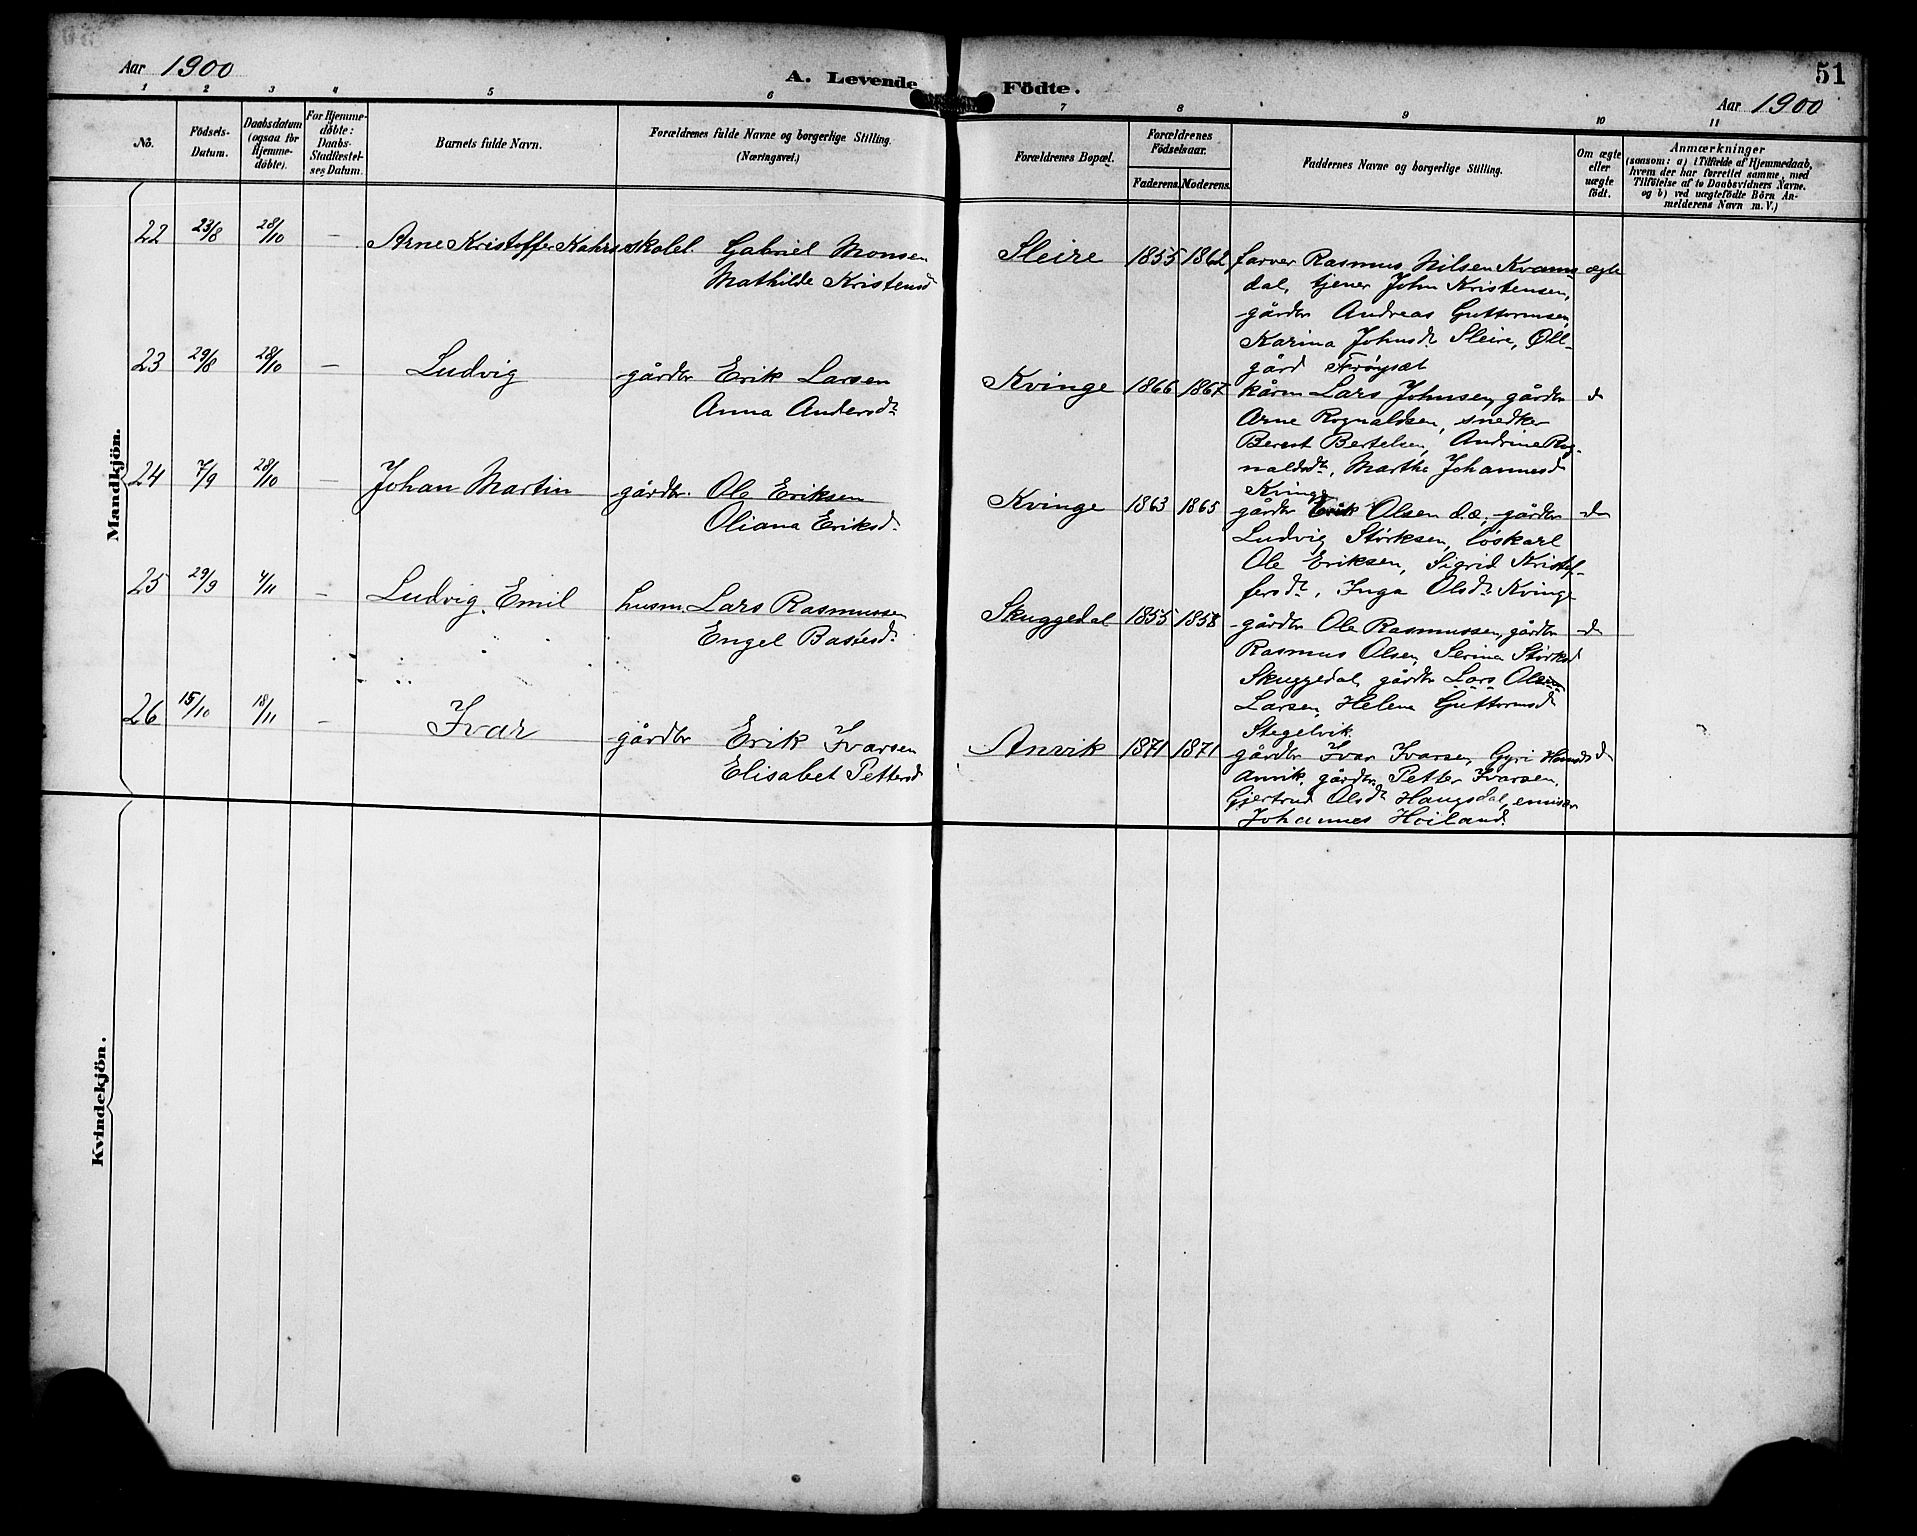 Aar 1900
A. Levende Födte.
51
Aar 1900
1 2 3 4 5 6 7 8 9 10 11
No.
Födsels-
Datum.
Daabsdatum
(ogsaa for
Hjemme-
döbte).
For Hjemme-
döbte:
Daabs-
Stadfæstel-
ses Datum.
Barnets fulde Navn.
Forældrenes fulde Navne og borgerlige Stilling.
(Næringsvei.)
Forældrenes Bopæl.
Forældrenes
Födselsaar.
Faderens. Moderens.
Faddernes Navne og borgerlige Stilling.
Om ægte
eller
uægte
födt.
Anmærkninger
(saasom: a) i Tilfælde af Hjemmedaab,
hvem der har forrettet samme, med
Tilföielse af to Daabsvidners Navne.
og b) ved uægtefödte Börn An-
melderens Navn m. V.)
Mandkjön.
22 23/8 28/10 — Arne Kristoffer Kahrs skolel. Gabriel Monsen
Mathilde Kristensd
Sleire 1855 1862 farver Rasmus Nilsen Kvams- ægte
dal, tjener John Kristensen,
gårdbr Andreas Guttormsen,
Karina Johnsdt Sleire,
gård Frøyset
23 29/8 28/10 — Ludvig gårdbr Erik Larsen
Anna Andersdt
Kvinge 1866 1867 kårm Lars Johnsen, gårdbr d
Arne Rognaldsen, snedker
Berent Bertelsen, Andrine Rog-
naldsdt, Marthe Johannesd
Kvinge
24 7/9 28/10 — Johan Martin gårdbr. Ole Eriksen
Oliana Eriksdt
Kvinge 1863 1865 gårdbr Erik Olsen d.æ., gårdbr d
Ludvig Størksen, løskarl
Ole Eriksen, Sigrid Kristof-
fersdt, Inga Olsdt Kvinge
25 29/9 4/11 — Ludvig Emil husm. Lars Rasmussen
Engel Basiesdt
Skuggedal 1855 1858 gårdbr Ole Rasmussen, gårdbr d
Rasmus Olsen, Serina Størksd
Skuggedal, gårdbr Lars Olsen
Larsen, Helena Guttormsd
Stegelvik
26 15/10 18/11 — Ivar gårdbr Erik Ivarsen
Elisabet Pettersd
Anvik 1871 1871 gårdbr Ivar Ivarsen, Gyri Hansd d
Anvik, gårdbr Petter Ivarsen,
Gjertrud Olsdt Haugsdal, emissær
Johannes Høiland.
Kvindekjön.